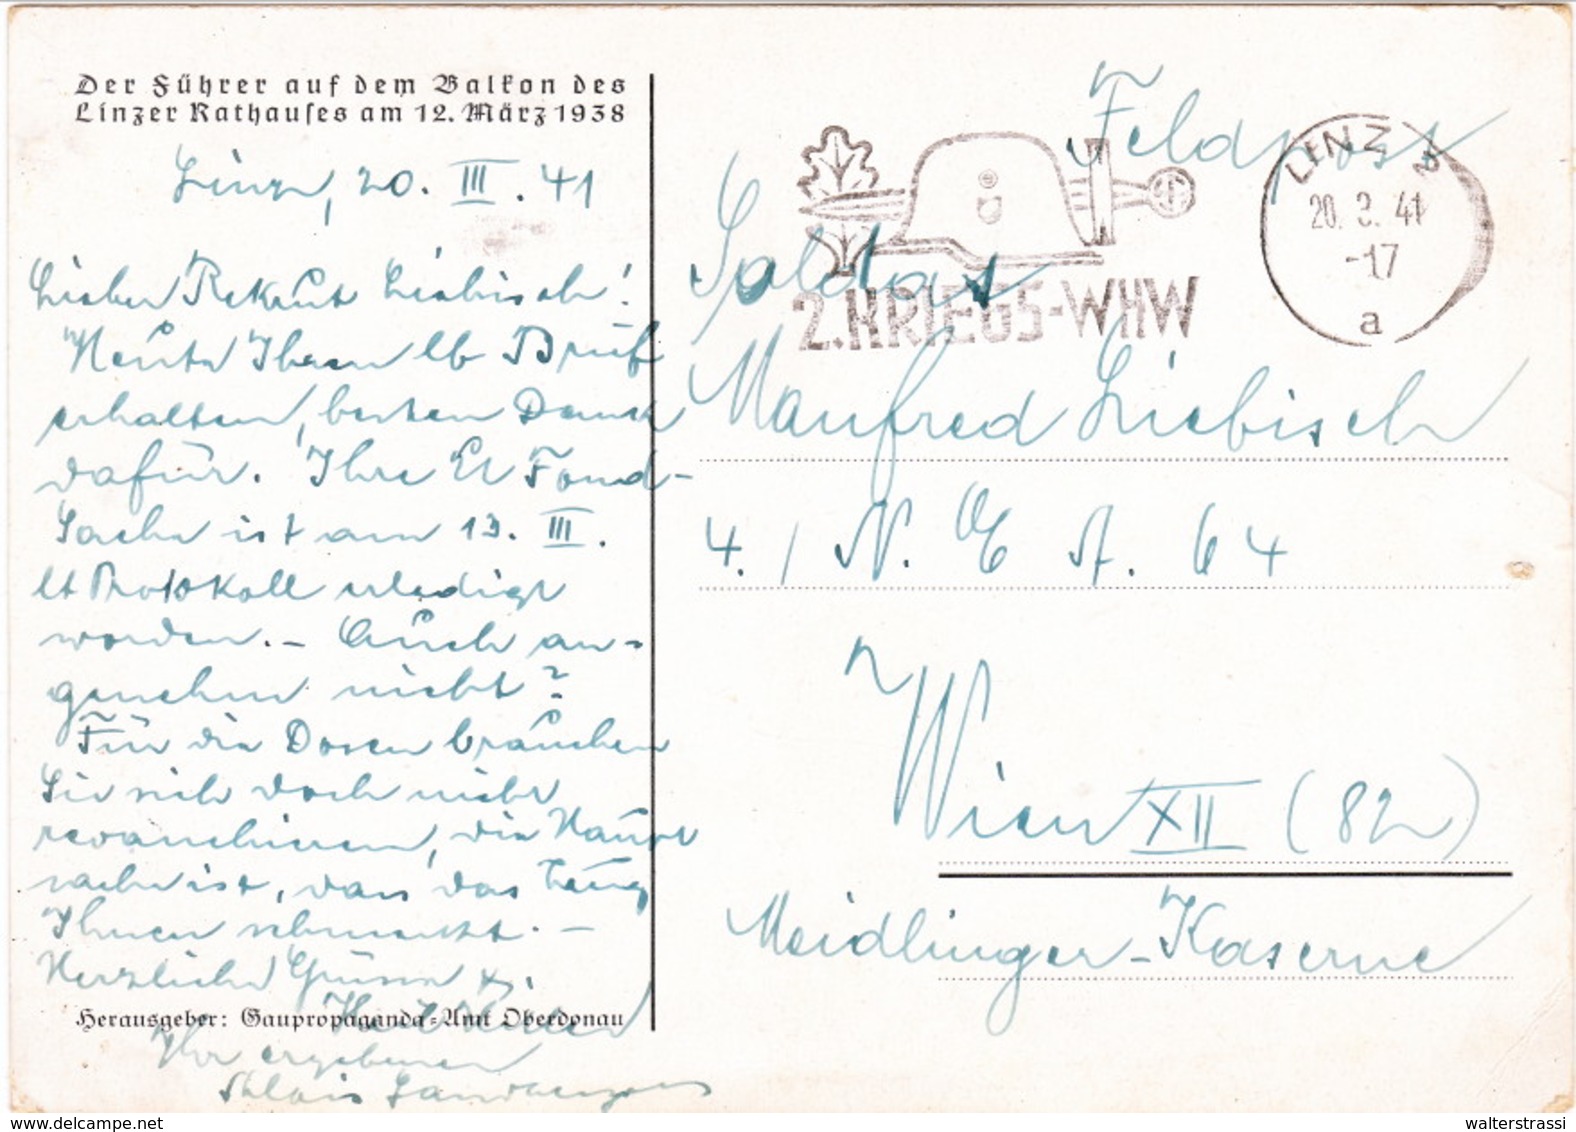 Der Führer auf dem Balkon des
Linzer Rathauses am 12. März 1938
Linz, 20. III. 41
Lieber Rekrut Liebisch!
Heute Ihren lb Brief
erhalten, besten Dank
dafür. Ihre
Sache ist am 13. III.
lt Protokoll erledigt
worden. – Auch an=
genehm nicht?
Für die Dosen brauchen
Sie sich doch nicht
revanchieren, die Haupt
sache ist, dass das Zeug
Ihnen schmeckt. –
Herzliche Grüsse
Heil Hitler
Herausgeber: Gaupropaganda=Amt Oberdonau
Ihr ergebener
Feldpost
LINZ
20. 3. 41
-17
a
2. KRIEGS-WHW
Soldat
Manfred Liebisch
4. / N. E A. 64
Wien XII (82)
Meidlinger-Kaserne
walterstrassi